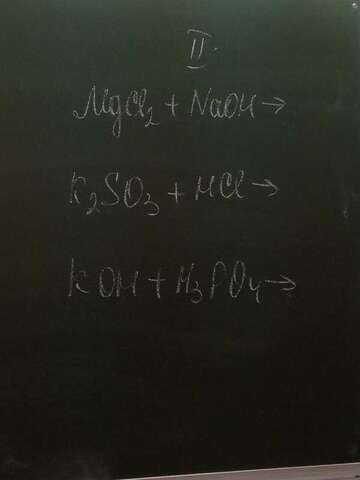 II.
MgCl₂ + NaOH →
K₂SO₃ + HCl →
KOH + H₃PO₄ →